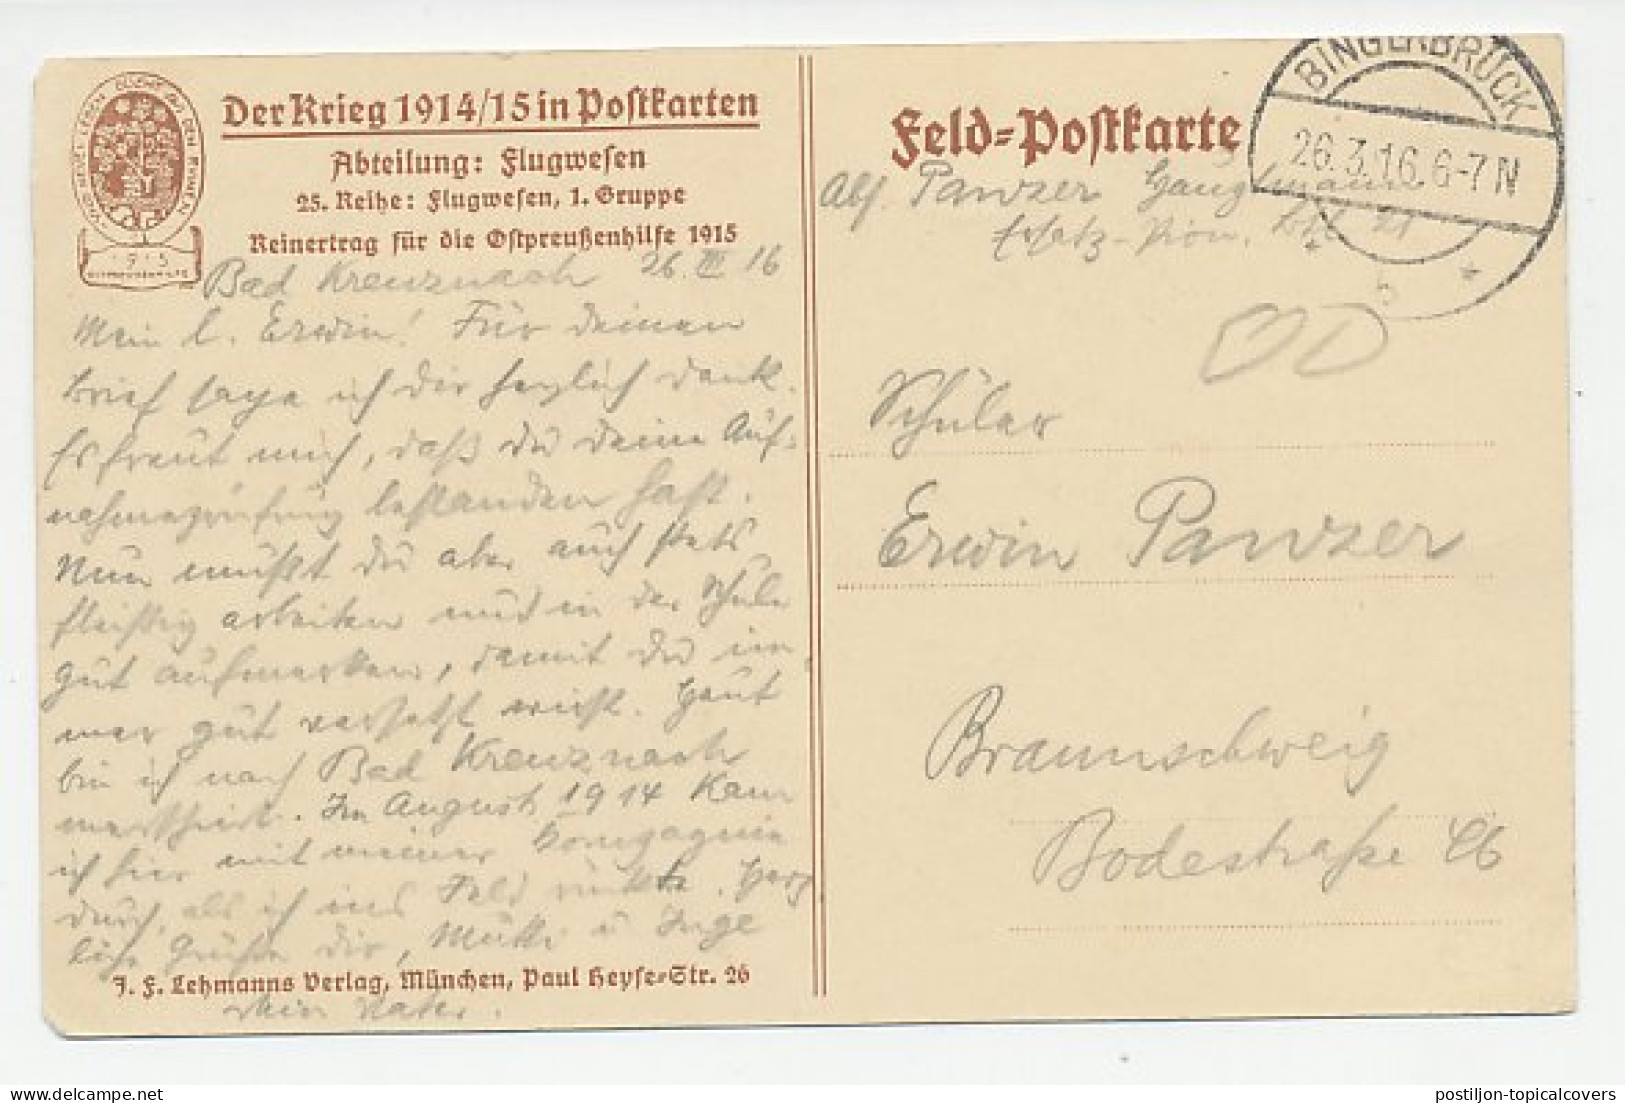 Der Krieg 1914/15 in Postkarten
Abteilung: Flugwesen
25. Reihe: Flugwesen, 1. Gruppe
Reinertrag für die Ostpreußenhilfe 1915
Bad Kreuznach 26. III 16
Mein l. Erwin! Für deinen
Brief sage ich dir herzlich Dank.
Es freut mich, daß du deine Auf-
nahmeprüfung bestanden hast.
Nun mußt du aber auch stets
fleißig arbeiten und in der Schule
gut aufmerken, damit du im-
mer gut versetzt wirst. Heut
bin ich nach Bad Kreuznach
marschiert. Im August 1914 kam
ich hier mit meiner Kompagnie
durch, als ich ins Feld rückte. Herz-
liche Grüße dir, Mutti u Inge
J. F. Lehmanns Verlag, München, Paul Heyse-Str. 26
Dein Vater.
Feld-Postkarte
BINGERBRÜCK
26.3.16.6-7N
Abs. Panzer Hauptmann
Ersatz-Pion. Btl 21
Schüler
Erwin Panzer
Braunschweig
Bodestraße
postiljon-topicalcovers